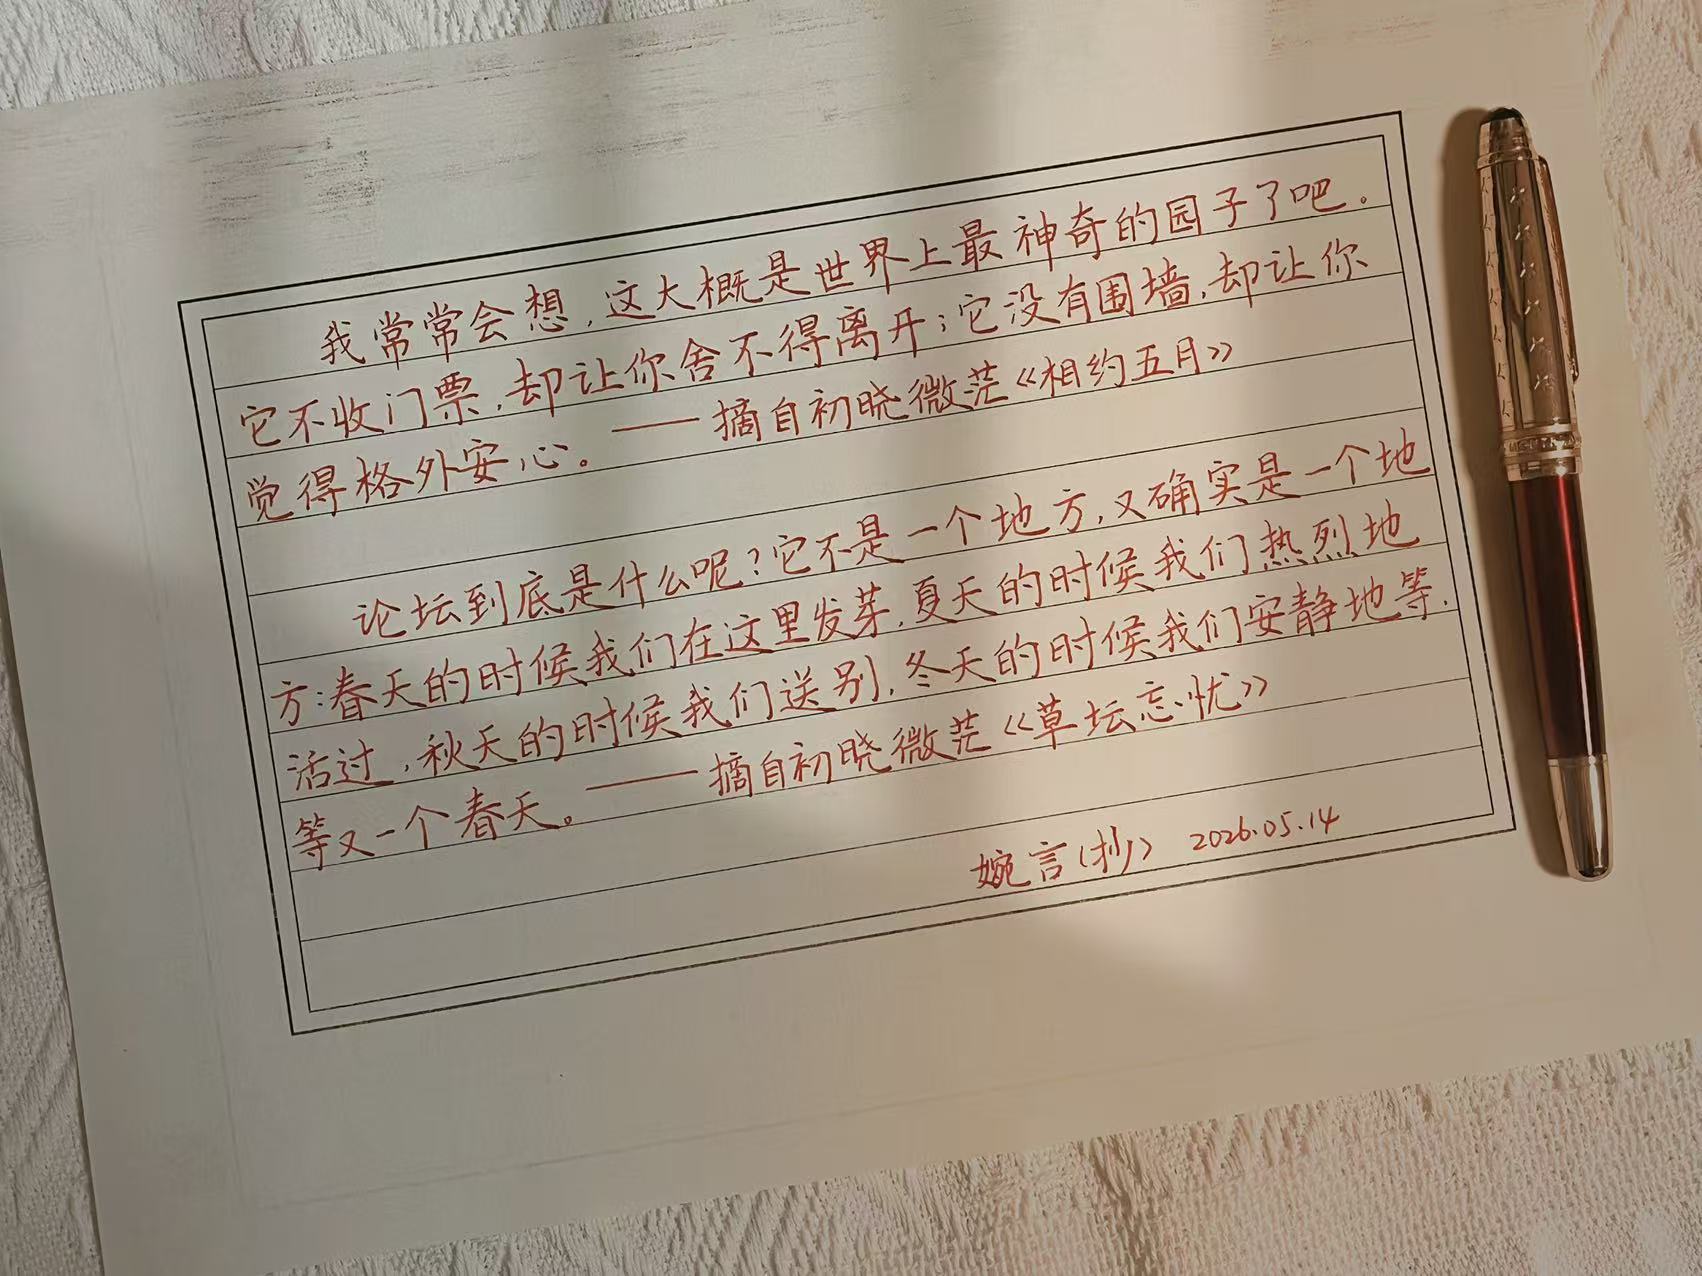 我常常会想，这大概是世界上最神奇的园子了吧。
它不收门票，却让你舍不得离开；它没有围墙，却让你
觉得格外安心。——摘自初晓微茫《相约五月》
论坛到底是什么呢？它不是一个地方，又确实是一个地
方：春天的时候我们在这里发芽，夏天的时候我们热烈地
活过，秋天的时候我们送别，冬天的时候我们安静地等，
等又一个春天。——摘自初晓微茫《草坛忘忧》
婉言（抄） 2026.05.14